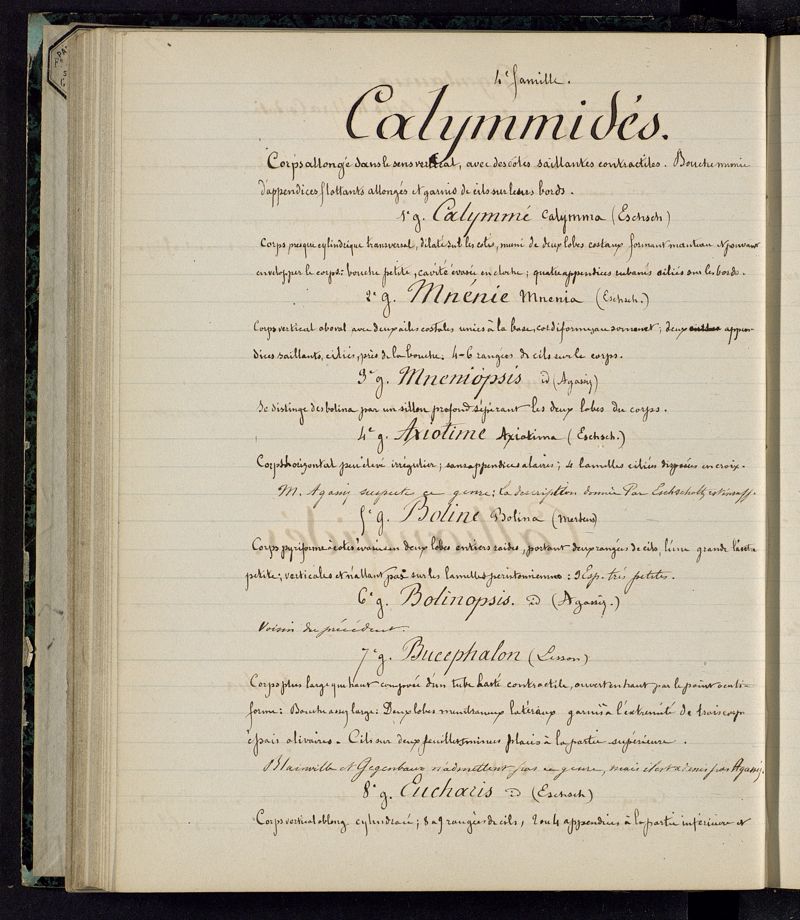 4e famille.
Calymmidés.
Corps allongé dans le sens vertical, avec des côtes saillantes contractiles. Bouche munie
d'appendices flottants allongés et garnis de cils sur leurs bords.
1e g. Calymmé Calymma (Eschsch)
Corps presque cylindrique transversal, dilaté sur les cotés, muni de deux lobes costaux formant manteau et pouvant
envelopper le corps: bouche petite, cavité évasée en cloche; quatre appendices rubanés ciliés sur les bords.
2e g. Mnénie Mnemia (Eschsch.)
Corps vertical oboval avec deux ailes costales unies à la base, cordiformes au sommet; deux appen-
dices saillants, ciliés, près de la bouche. 4-6 rangées de cils sur le corps.
3e g. Mneniopsis id (Agassiz)
Se distinge des bolina par un sillon profond séparant les deux lobes du corps.
4e g. Axiotime Axiotima (Eschsch.)
Corps horizontal peu élevé irrégulier; sans appendices alaires; 4 lamelles ciliées disposées en croix.
M. Agassiz suspecte ce genre: la description donnée Par Eschscholtz est insuff.
5e g. Boline Bolina (Mertens)
Corps pyriforme à cotés évasés en deux lobes entiers raides, portant deux rangées de cils, l'une grande l'autre
petite, verticales et n'allant pas sur les lamelles péristomiennes: 3 Esp. très petites.
6e g. Bolinopsis. id (Agassiz.)
Voisin du précédent.
7e g. Bucephalon (Lesson)
Corps plus large que haut composé d'un tube contractile, ouvert en haut par le point
forme: Bouche assez large: Deux lobes membraneux latéraux garnis à l'extrémité de trois corps
épais olivaires. Cils sur deux feuillets minces placés à la partie supérieure.
Blainville et Gegenbaur n'admettent pas ce genre, mais il est admis par Agassiz.
8e g. Eucharis id (Eschsch)
Corps vertical oblong cylindracé; 8 à 9 rangées de cils, 2 ou 4 appendices à la partie inférieure et